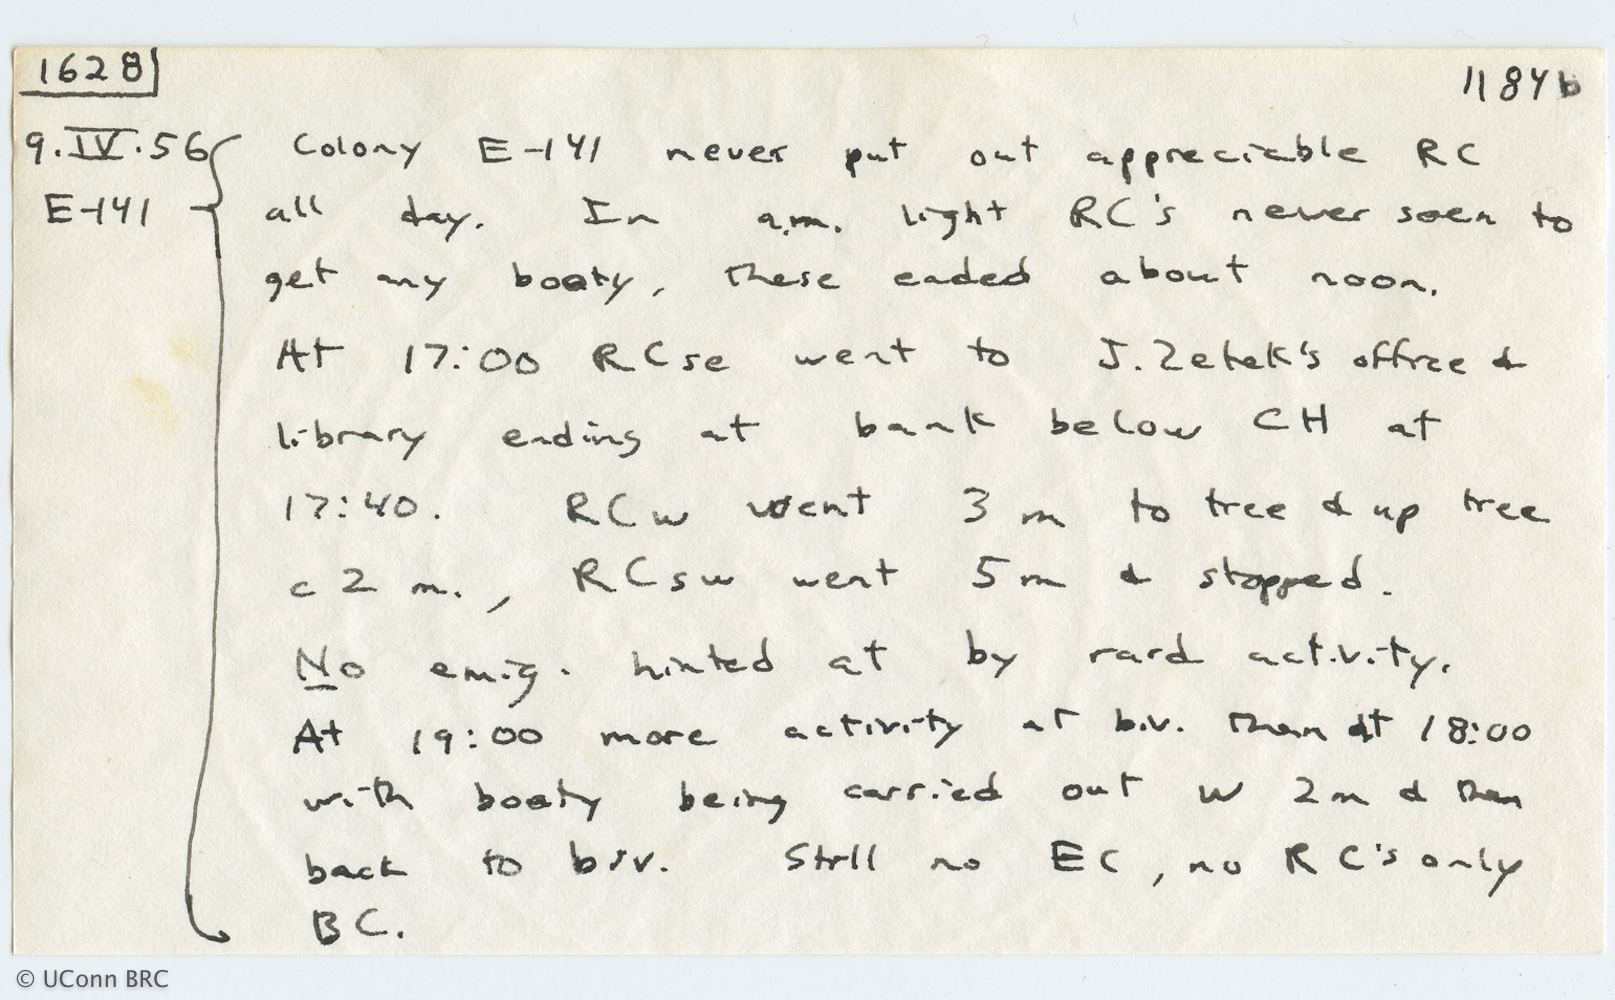 1628
1184b
9.IV.56
E-141
Colony E-141 never put out appreciable RC
all day. In a.m. light RC's never seen to
get any booty, these ended about noon.
At 17:00 RCse went to J. Zetek's office &
library ending at bank below CH at
17:40. RCw went 3 m to tree & up tree
c 2 m., RCsw went 5 m & stopped.
No emig. hinted at by raid activity.
At 19:00 more activity at biv. than at 18:00
with booty being carried out W 2m & then
back to biv. Still no EC, no RC's only
BC.
© UConn BRC